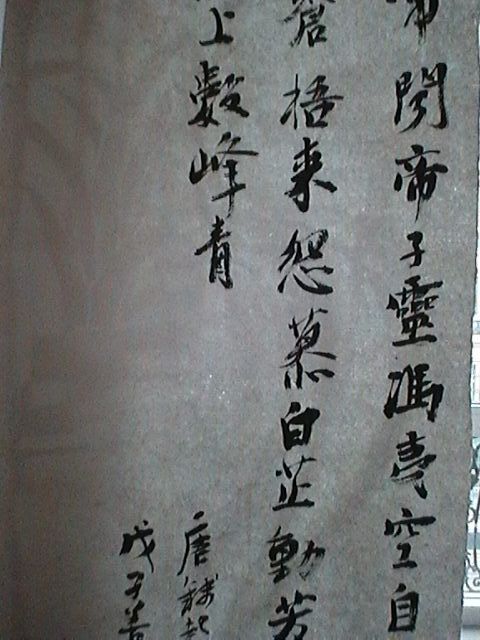 常聞帝子靈馮夷空自
蒼梧来怨慕白芷動芳
上數峰青
唐錢起
戊子